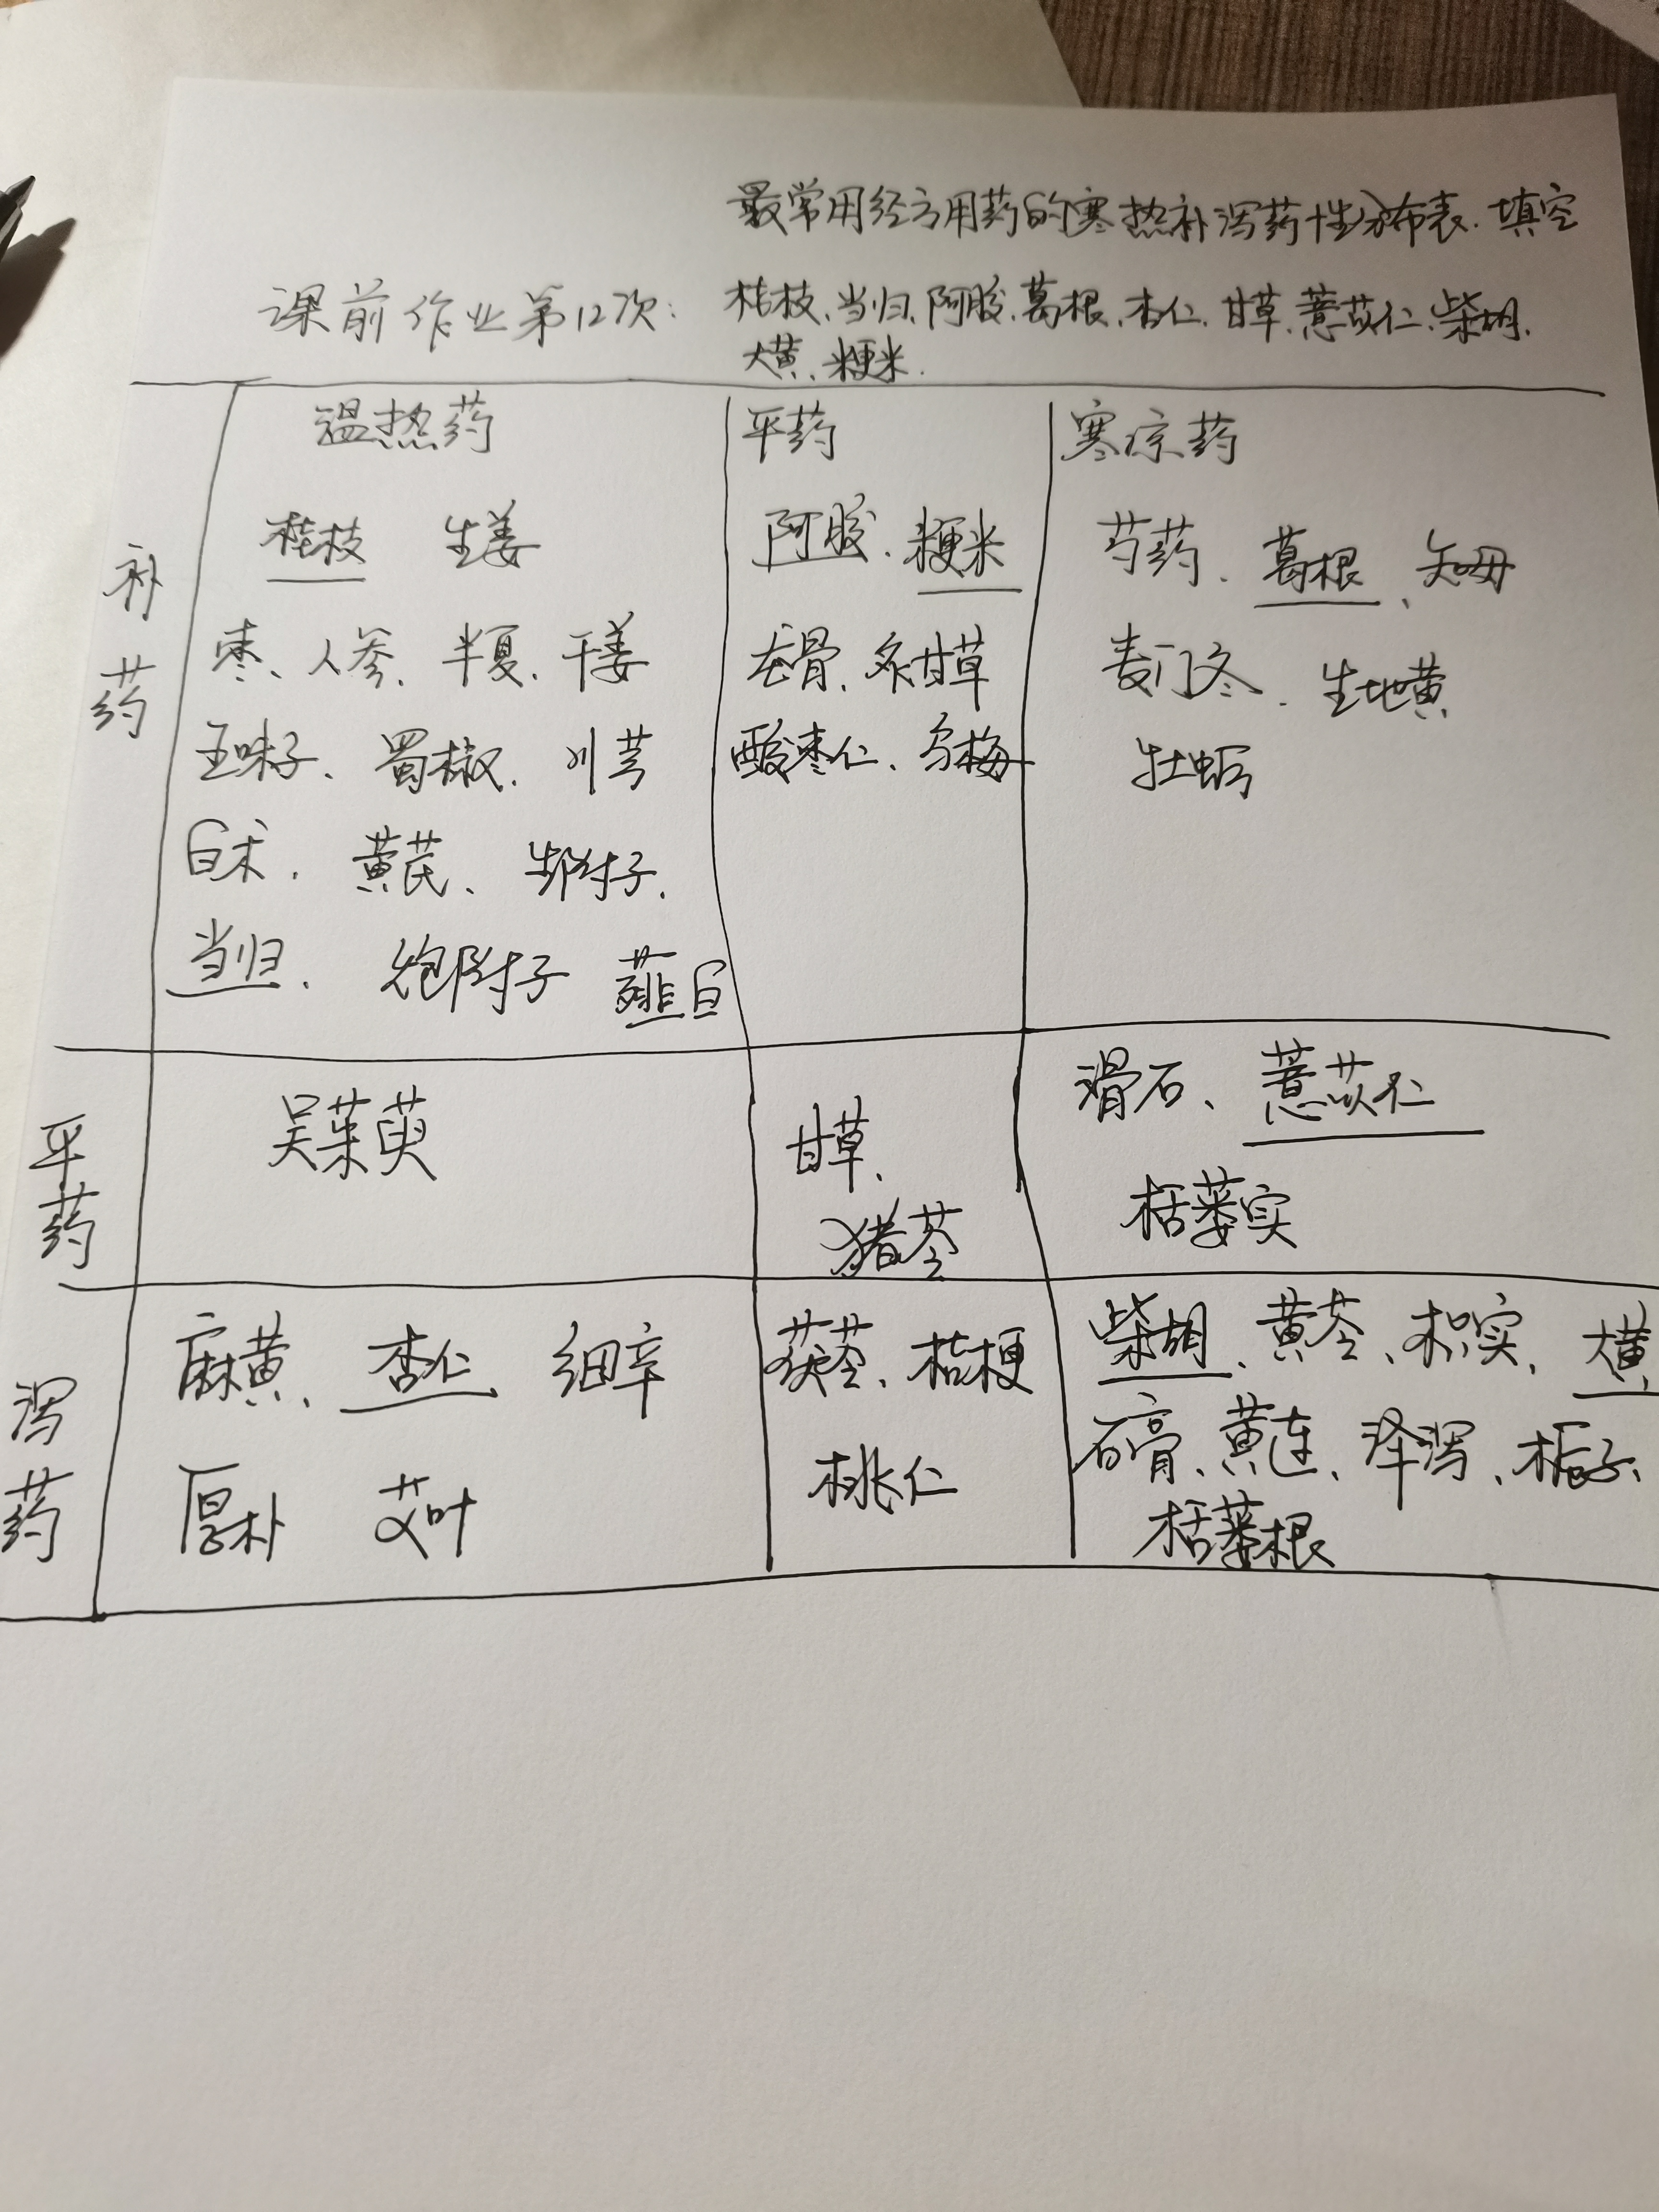 最常用经方用药的寒热补泻药性分布表.填空
课前作业第12次: 桂枝、当归、阿胶、葛根、杏仁、甘草、薏苡仁、柴胡、
大黄、粳米.
温热药 平药 寒凉药
补药
桂枝 生姜
枣、人参、半夏、干姜
五味子、蜀椒、川芎
白术、黄芪、生附子、
当归、炮附子 薤白
阿胶、粳米
龙骨、炙甘草
酸枣仁、乌梅
芍药、葛根、知母
麦门冬、生地黄
牡蛎
平药
吴茱萸
甘草、
猪苓
滑石、薏苡仁
栝蒌实
泻药
麻黄、杏仁 细辛
厚朴 艾叶
茯苓、桔梗
桃仁
柴胡、黄芩、枳实、大黄、
石膏、黄连、泽泻、栀子、
栝蒌根